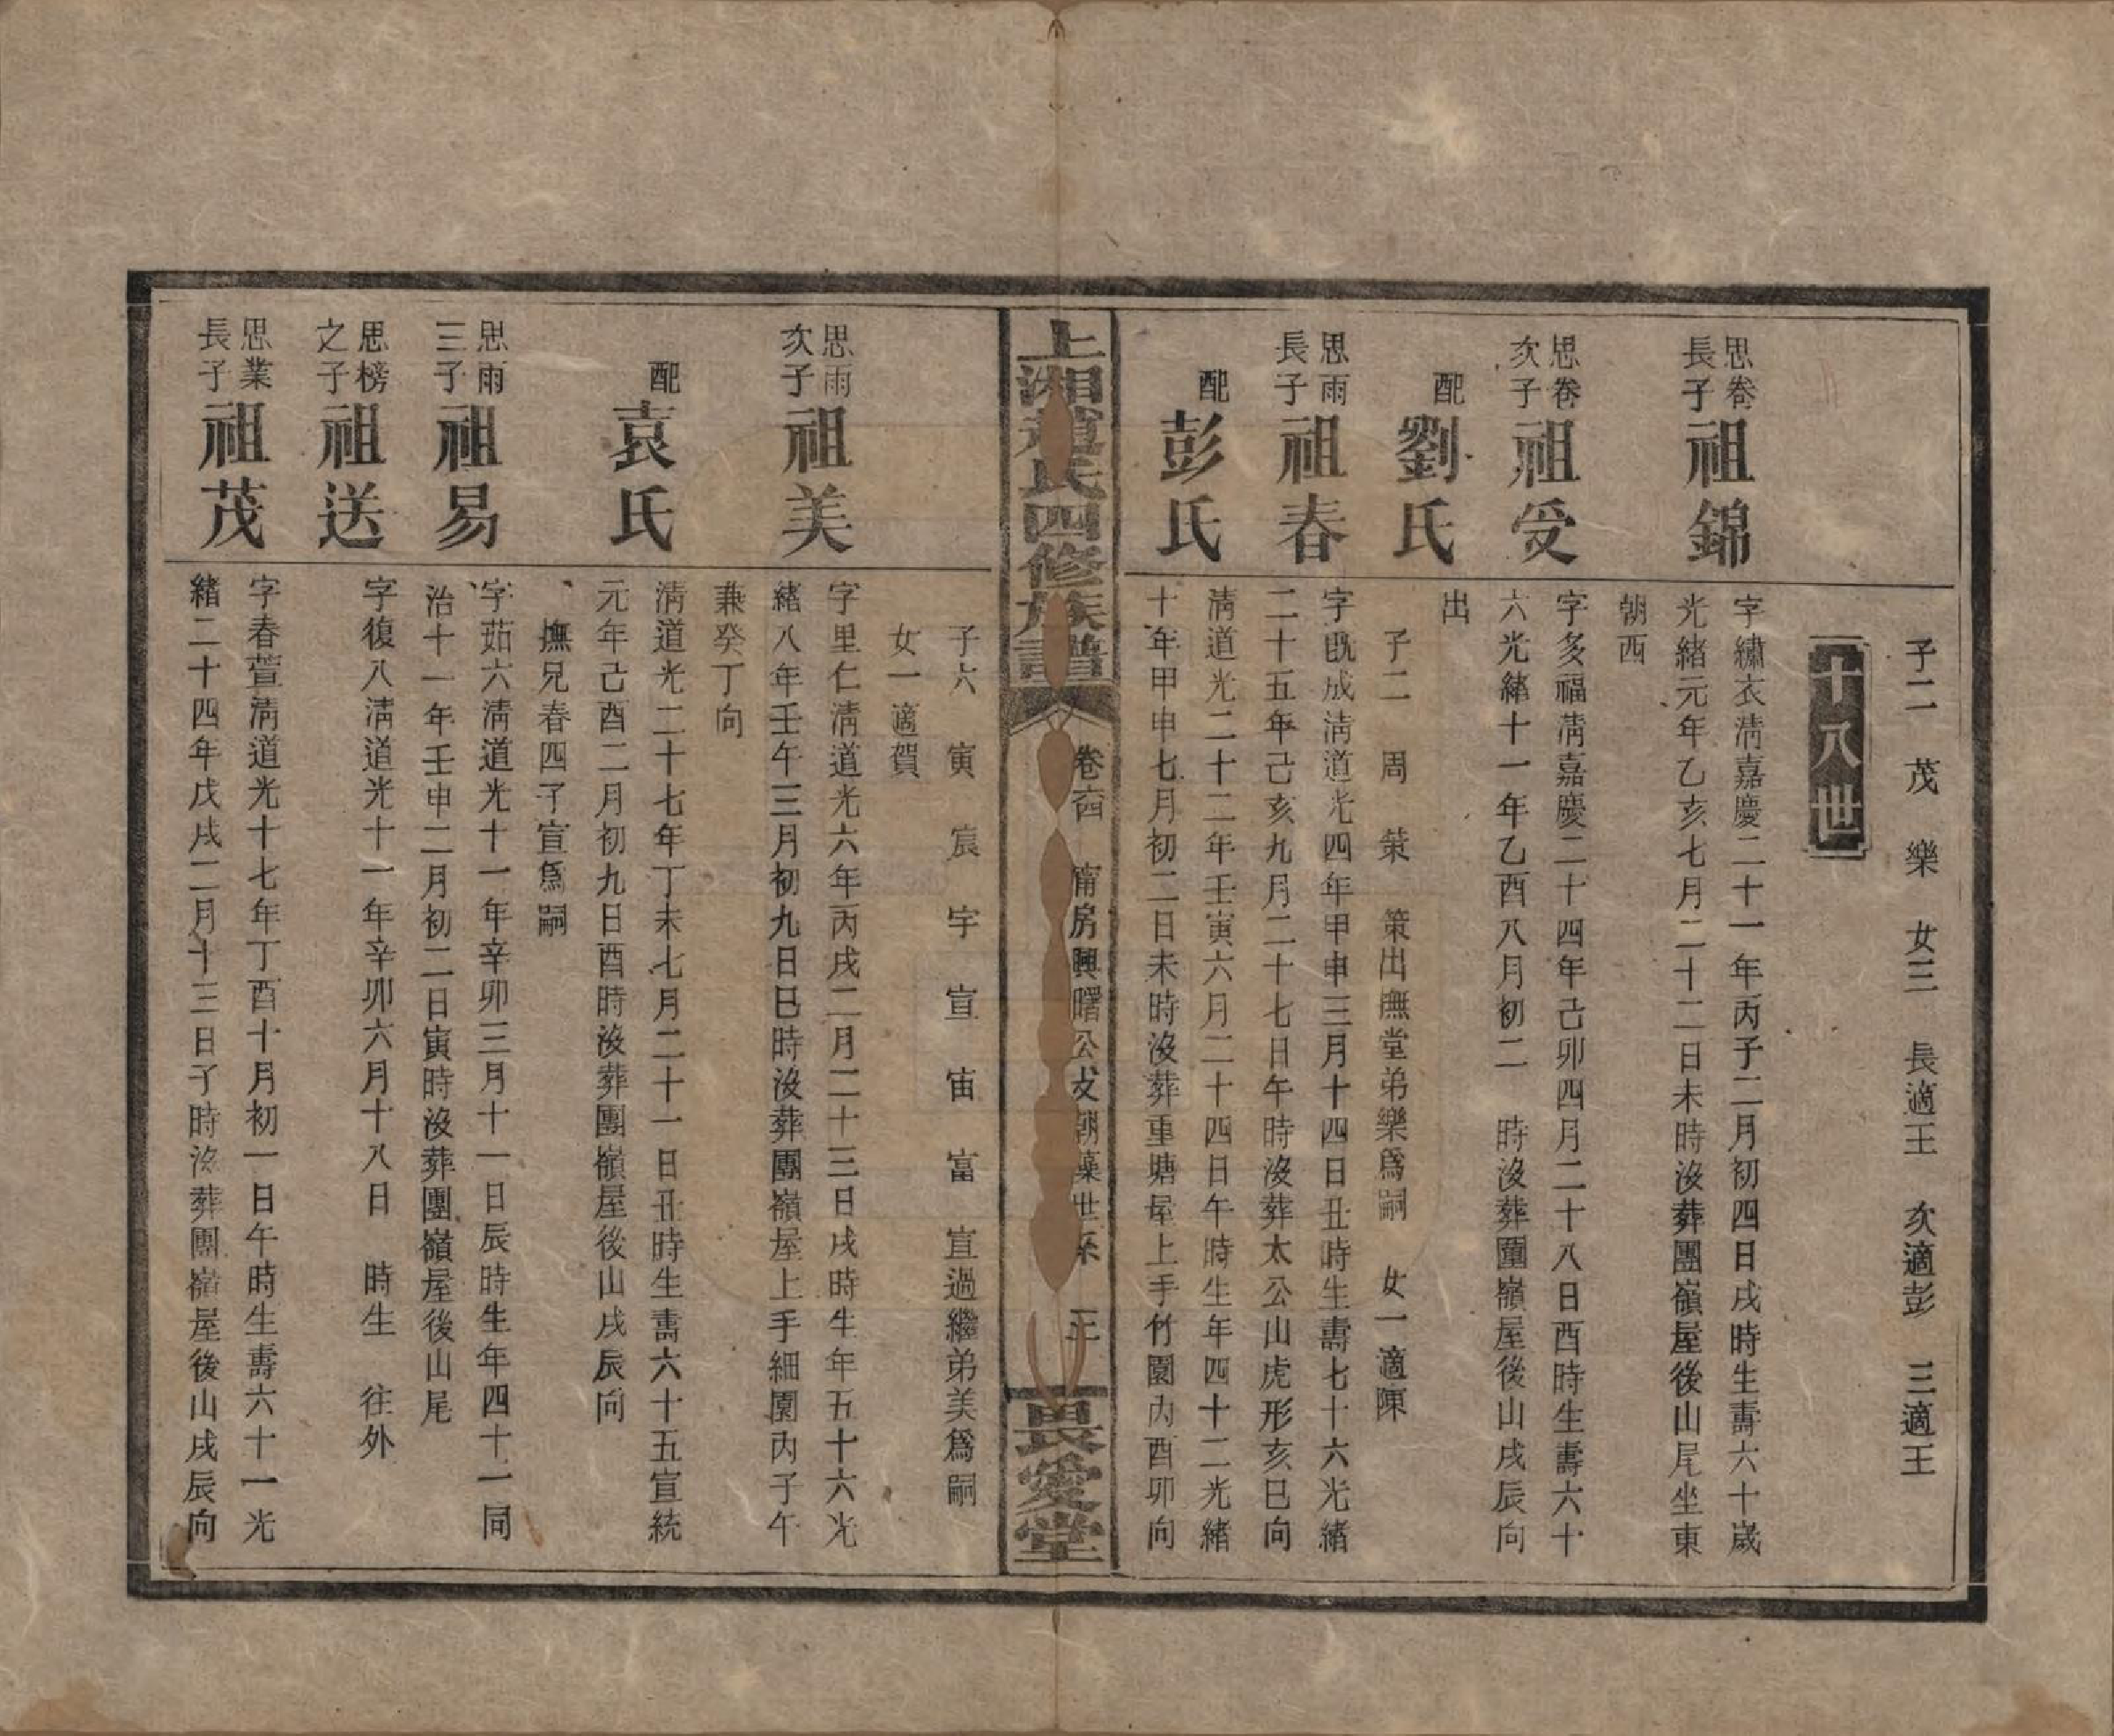 子二 茂 樂 女三 長適王 次適彭 三適王
十八世
思卷長子 祖錦
字繡衣淸嘉慶二十一年丙子二月初四日戌時生壽六十歲
光緒元年乙亥七月二十二日未時沒葬團嶺屋後山尾坐東
朝西
思卷次子 祖受
字多福淸嘉慶二十四年己卯四月二十八日酉時生壽六十
六光緒十一年乙酉八月初二 時沒葬團嶺屋後山戌辰向
出
配 劉氏
子二 周 策 策出撫堂弟樂爲嗣 女一適陳
思雨長子 祖春
字旣成淸道光四年甲申三月十四日丑時生壽七十六光緒
二十五年己亥九月二十七日午時沒葬太公山虎形亥巳向
配 彭氏
淸道光二十二年壬寅六月二十四日午時生年四十二光緒
十年甲申七月初二日未時沒葬重塘屋上手竹園內酉卯向
上湘 氏四修族譜 卷 四 甯房興曙公 朝 世系 三 畏愛堂
子六 寅 宸 宇 宣 宙 富 宣過繼弟美爲嗣
女一適賀
思雨次子 祖美
字里仁淸道光六年丙戌二月二十三日戌時生年五十六光
緒八年壬午三月初九日巳時沒葬團嶺屋上手細園內子午
兼癸丁向
配 袁氏
淸道光二十七年丁未七月二十一日丑時生壽六十五宣統
元年己酉二月初九日酉時沒葬團嶺屋後山戌辰向
撫兄春四子宣爲嗣
思雨三子 祖易
字茹六淸道光十一年辛卯三月十一日辰時生年四十一同
治十一年壬申二月初二日寅時沒葬團嶺屋後山尾
思榜之子 祖送
字復八淸道光十一年辛卯六月十八日 時生 往外
思業長子 祖茂
字春萱淸道光十七年丁酉十月初一日午時生壽六十一光
緒二十四年戊戌二月十三日子時沒葬團嶺屋後山戌辰向